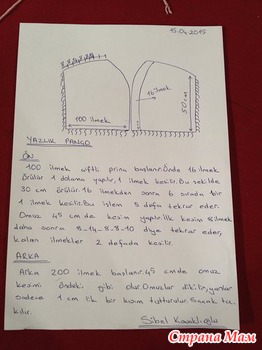 15.04.2015
16 ilmek
100 ilmek
50 cm
YAZLIK PANÇO
ÖN
100 ilmek çiftli prinç başlanır. Önde 16 ilmek
örülür 1 dolama yapılır, 1 ilmek kesilir. Bu şekilde
30 cm örülür. 16 ilmekden sonra 6 sırada bir
1 ilmek kesilir. Bu işlem 5 defa tekrar eder.
Omuz 45 cm de kesim yapılır. İlk kesim 8 ilmek
daha sonra 8-14-8-8-10 diye tekrar eder,
kalan ilmekler 2 defada kesilir.
ARKA
Arka 200 ilmek başlanır. 45 cm de omuz
kesimi öndeki gibi olur. Omuzlar dikilir, yanlar
sadece 1 cm lik bir kısım tutturulur. Saçak ta-
kılır.
Sibel
Страна Мам